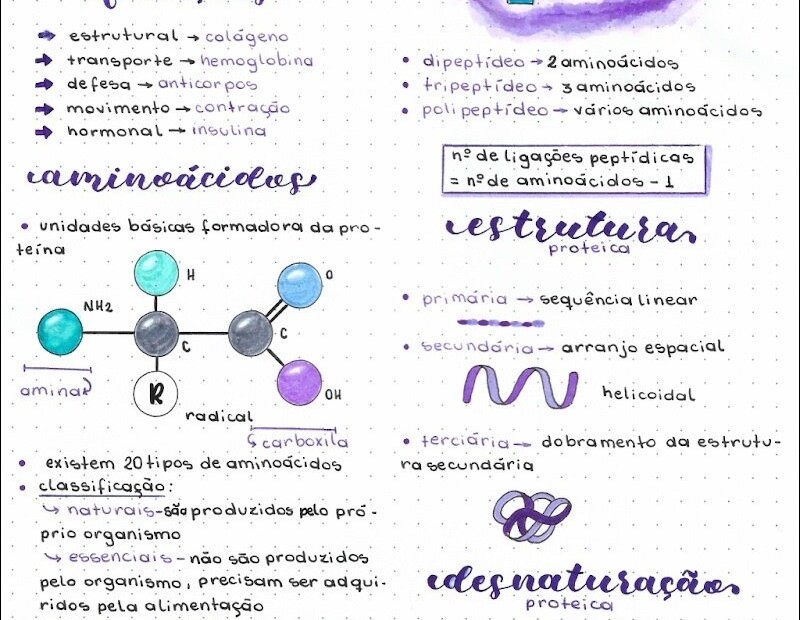 → estrutural → colágeno
→ transporte → hemoglobina
→ defesa → anticorpos
→ movimento → contração
→ hormonal → insulina
aminoácidos
• unidades básicas formadora da pro-
teína
H
O
NH2
C
C
R
OH
amina
radical
carboxila
• existem 20 tipos de aminoácidos
• classificação:
↳ naturais - são produzidos pelo pró-
prio organismo
↳ essenciais - não são produzidos
pelo organismo, precisam ser adqui-
ridos pela alimentação
• dipeptídeo → 2 aminoácidos
• tripeptídeo → 3 aminoácidos
• polipeptídeo → vários aminoácidos
nº de ligações peptídicas
= nº de aminoácidos - 1
estrutura
proteica
• primária → sequência linear
• secundária → arranjo espacial
helicoidal
• terciária → dobramento da estrutu-
ra secundária
desnaturação
proteica